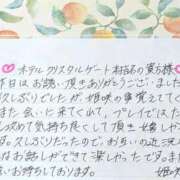 ホテルクリスタルゲート 本指名の貴方様
昨日は お誘い頂き ありがとうございました
久しぶりでしたが、姫咲の事覚えてくて
また 会いに来てくれて、プレイでは
して 気持ち良くして 頂き 嬉しか
す。久しぶりだったので お互いの近
なお話しができて 楽しかったです。
お誘いしております。
姫咲